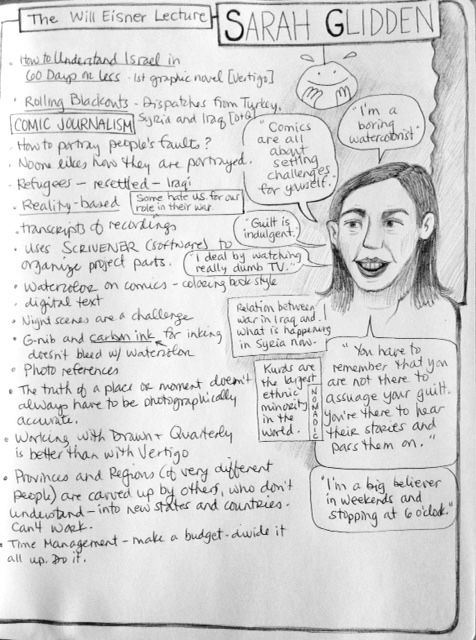 The Will Eisner Lecture
SARAH GLIDDEN
• How to Understand Israel in
60 Days or Less - 1st graphic novel [Vertigo]
• Rolling Blackouts - Dispatches from Turkey,
Syria and Iraq [D+Q]
COMIC JOURNALISM
• How to portray people's faults?
• No one likes how they are portrayed.
• Refugees - resettled - Iraqi
• Reality-based
Some hate us for our
role in their war.
transcripts of recordings
• Uses SCRIVENER (software) to
organize project parts.
• Watercolor on comics - coloring book style
• digital text
• Night scenes are a challenge
• G-nib and carbon ink for inking
doesn't bleed w/ watercolor
• Photo references
• The truth of a place or moment doesn't
always have to be photographically
accurate.
• Working with Drawn + Quarterly
is better than with Vertigo
• Provinces and Regions (of very different
people) are carved up by others, who don't
understand - into new states and countries.
Can't work.
• Time Management - make a budget - divide it
all up. Do it.
"Comics
are all
about
setting
challenges
for yourself."
"I'm a
boring
watercolorist"
"Guilt is
indulgent."
"I deal by watching
really dumb TV."
Relation between
war in Iraq and
what is happening
in Syria now.
Kurds are
the largest
ethnic
minority
in the
world.
NOMADIC
"You have to
remember that you
are not there to
assuage your guilt.
You're there to hear
their stories and
pass them on."
"I'm a big believer
in weekends and
stopping at 6 o'clock."